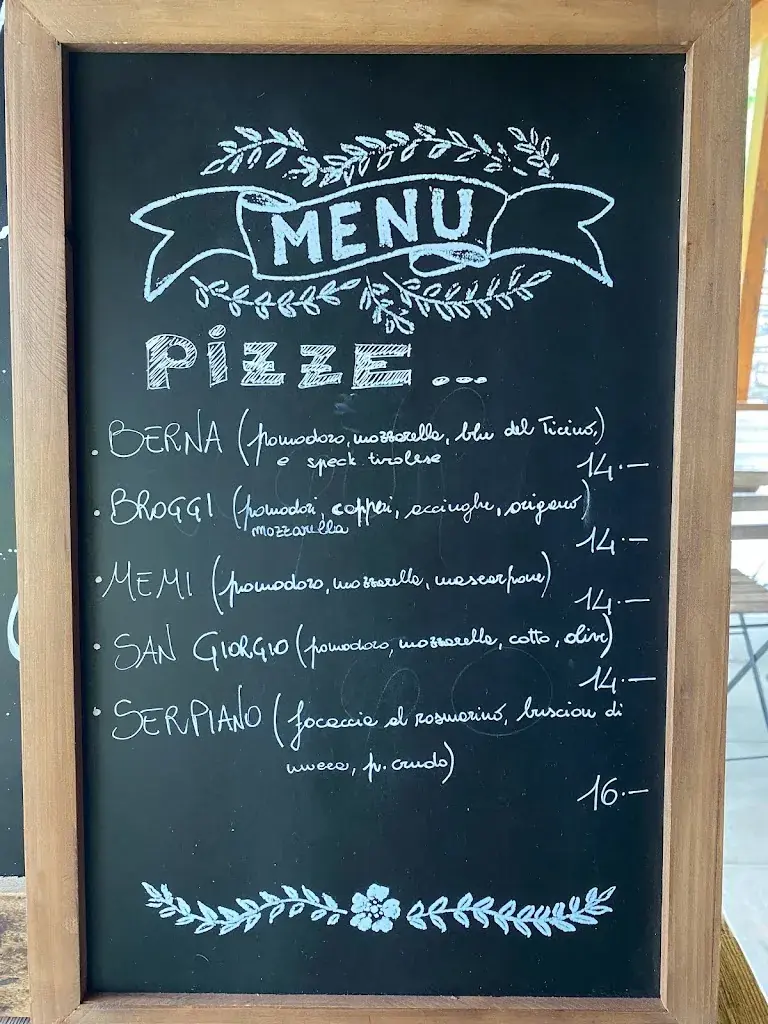 MENU
PIZZE...
• BERNA (pomodoro, mozzarella, blu del Ticino,)
e speck tirolese
14.—
• BROGGI (pomodori, capperi, acciughe, origano)
mozzarella
14.—
• MEMI (pomodoro, mozzarella, mascarpone)
14.—
• SAN GIORGIO (pomodoro, mozzarella, cotto, olive)
14.—
• SERPIANO (focaccia al rosmarino, buscion di
mucca, p. crudo)
16.—